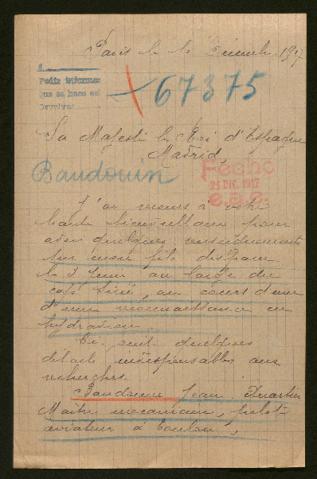 Paris le 12 Decembre 1917
Pedir informes
que se hace en
67375
Sa Majesté le Roi d'Espagne
Madrid
Baudouin
Fecho
21 DIC. 1917
J'ai recours à votre
haute bienveillance pour
avoir quelques renseignements
sur mon fils disparu
le 3 au large du
cours d'une
d'une reconnaissance en
hydravion.
Ci suit quelques
détails indispensables aux
recherches.
Baudouin Jean
Maître mécanicien, pilote
aviateur à Toulon,